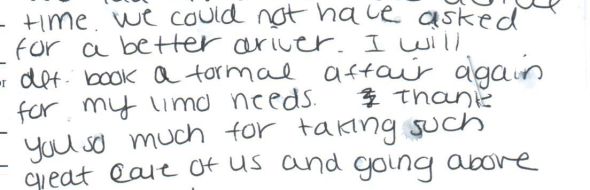 time. we could not have asked
for a better driver. I will
def. book a formal affair again
for my limo needs. Thank
you so much for taking such
great care of us and going above